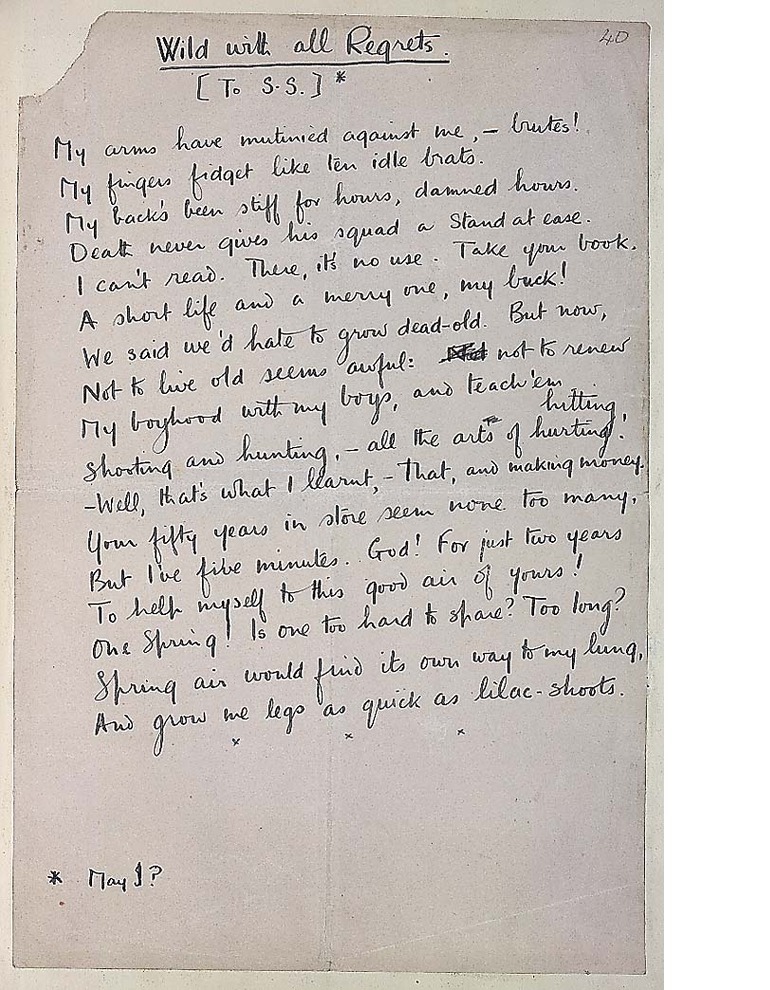 40
Wild with all Regrets.
[To S.S.]*
My arms have mutinied against me, – brutes!
My fingers fidget like ten idle brats.
My back's been stiff for hours, damned hours.
Death never gives his squad a Stand at ease.
I can't read. There, it's no use. Take your book.
A short life and a merry one, my buck!
We said we'd hate to grow dead-old. But now,
Not to live old seems awful: not to renew
My boyhood with my boys, and teach 'em
hitting,
Shooting and hunting, – all the arts of hurting!
– Well, that's what I learnt, – That, and making money.
Your fifty years in store seem none too many,
But I've five minutes. God! For just two years
To help myself to this good air of yours!
One Spring! Is one too hard to spare? Too long?
Spring air would find its own way to my lung,
And grow me legs as quick as lilac-shoots.
x x x
* May I?